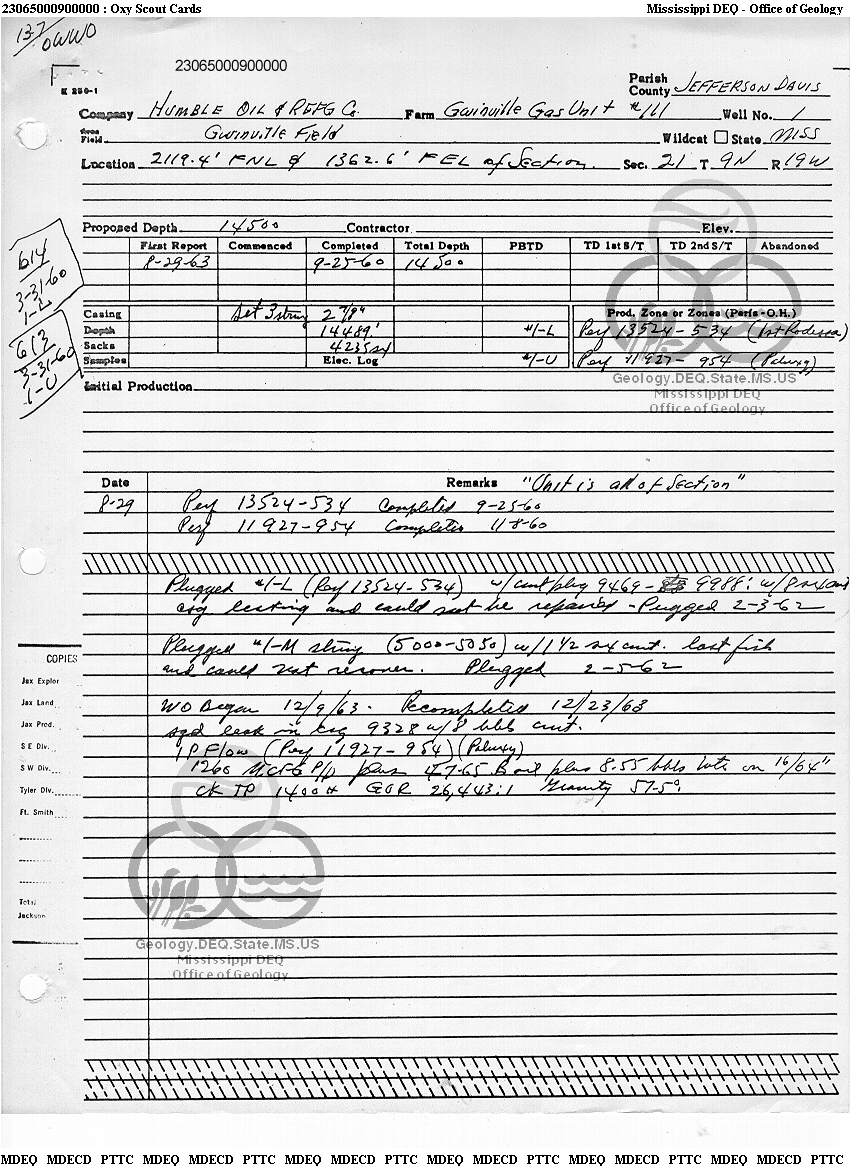 23065000900000 : Oxy Scout Cards Mississippi DEQ - Office of Geology
13-7
OWWO
23065000900000
K 250-1
Parish
County JEFFERSON DAVIS
Company HUMBLE OIL & REFG Co. Farm Gwinville Gas Unit #111 Well No. 1
Field Gwinville Field Wildcat State MISS
Location 2119.4' FNL & 1362.6' FEL of Section. Sec. 21 T 9N R 19W
Proposed Depth 14500 Contractor Elev.
First Report Commenced Completed Total Depth PBTD TD 1st S/T TD 2nd S/T Abandoned
8-29-63 9-25-60 14500
614
3-31-60
1-L
613
3-31-60
1-U
Casing Set 3 string 2 7/8" Prod. Zone or Zones (Perfs-O.H.)
Depth 14489' #1-L Perf 13524-534 (1st Rodessa)
Sacks 4235 sx
Samples Elec. Log #1-U Perf 11927-954 (Paluxy)
Geology.DEQ.State.MS.US
Mississippi DEQ
Office of Geology
Initial Production
Date Remarks "Unit is all of Section"
8-29 Perf 13524-534 Completed 9-25-60
Perf 11927-954 Completed 11-8-60
Plugged #1-L (Perf 13524-534) w/cmt plug 9469- 9988' w/8 sx cmt
csg leaking and could not be repaired - Plugged 2-3-62
Plugged #1-M string (5000-5050) w/1 1/2 sx cmt. lost fish
and could not recover. Plugged 2-5-62
WO Began 12/9/63. Recompleted 12/23/63
sqd leak in csg 9328 w/8 bbls cmt.
IP Flow (Perf 11927-954) (Paluxy)
1260 MCFG P/D plus 47.65 B oil plus 8.55 bbls wtr on 16/64"
CK TP 1400# GOR 26,443:1 Gravity 57.5°
COPIES
Jax Explor
Jax Land
Jax Prod.
S E Div.
S W Div.
Tyler Div.
Ft. Smith
Total
Jackson
Geology.DEQ.State.MS.US
Mississippi DEQ
Office of Geology
MDEQ MDECD PTTC MDEQ MDECD PTTC MDEQ MDECD PTTC MDEQ MDECD PTTC MDEQ MDECD PTTC MDEQ MDECD PTTC